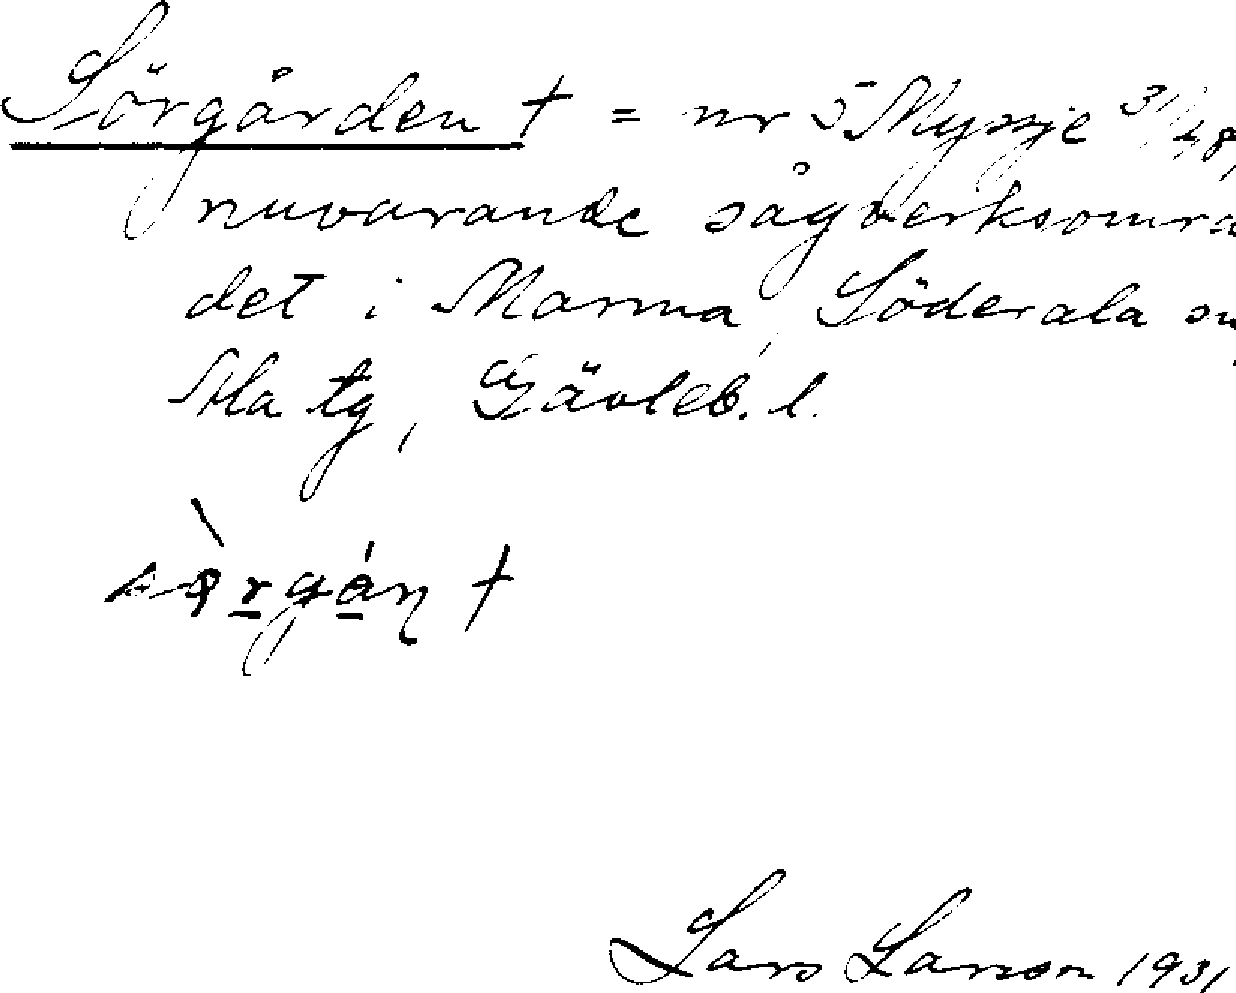 Sörgården † = nr 5 Myskje 31/48,
nuvarande sågverksområ
det i Marma, Söderala sn,
Ala tg, Gävleb. l.
Lars Larson 1931